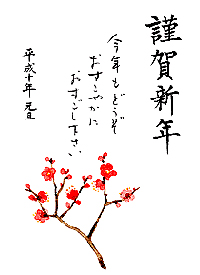 謹賀新年
今年もどうぞ
おすこやかに
おすごし下さい
平成十年 元旦